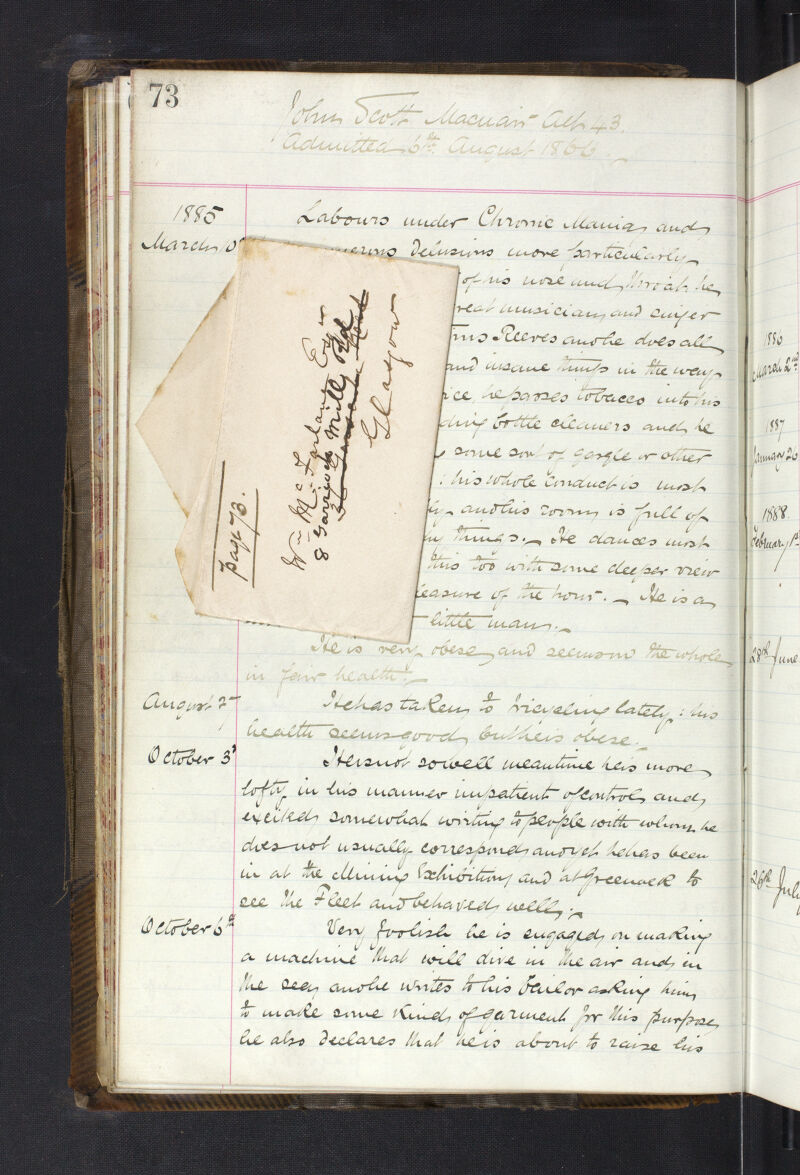 73
John Scott Macnair Aet 43.
Admitted 6th August 1866.
1885
Labours under Chronic Mania and
March 10
delusions more particularly
of his nose and throat he
great musician and singer
Sims Reeves and he does all
and insane things in the way
he passes tobacco into his
bottle cleaners and he
some sort of gargle or other
: his whole conduct is most
and his room is full of
things. He dances most
this too with some deeper view
pleasure of the hour. He is a
little man.
He is very obese, and seems on the whole
in fair health.
August 2nd
He has taken to tricycling lately: his
health seems good, but he is obese.
October 3d
He is not so well meantime he is more
lofty in his manner impatient of control and
excited somewhat writing to people with whom he
does not usually correspond and yet he has been
in at the Mining Exhibition and at Greenock to
see the Fleet and behaved well.
October 6th
Very foolish he is engaged on making
a machine that will dive in the air and in
the sea and he writes to his tailor asking him
to make some kind of garment for this purpose
he also declares that he is about to raise his
page 73.
Wm McFarlane Esqr
8 Garrioch Mill Rd
Glasgow
1886
March 2nd
1887
January 26
1888
February 1st
28th June
26th July